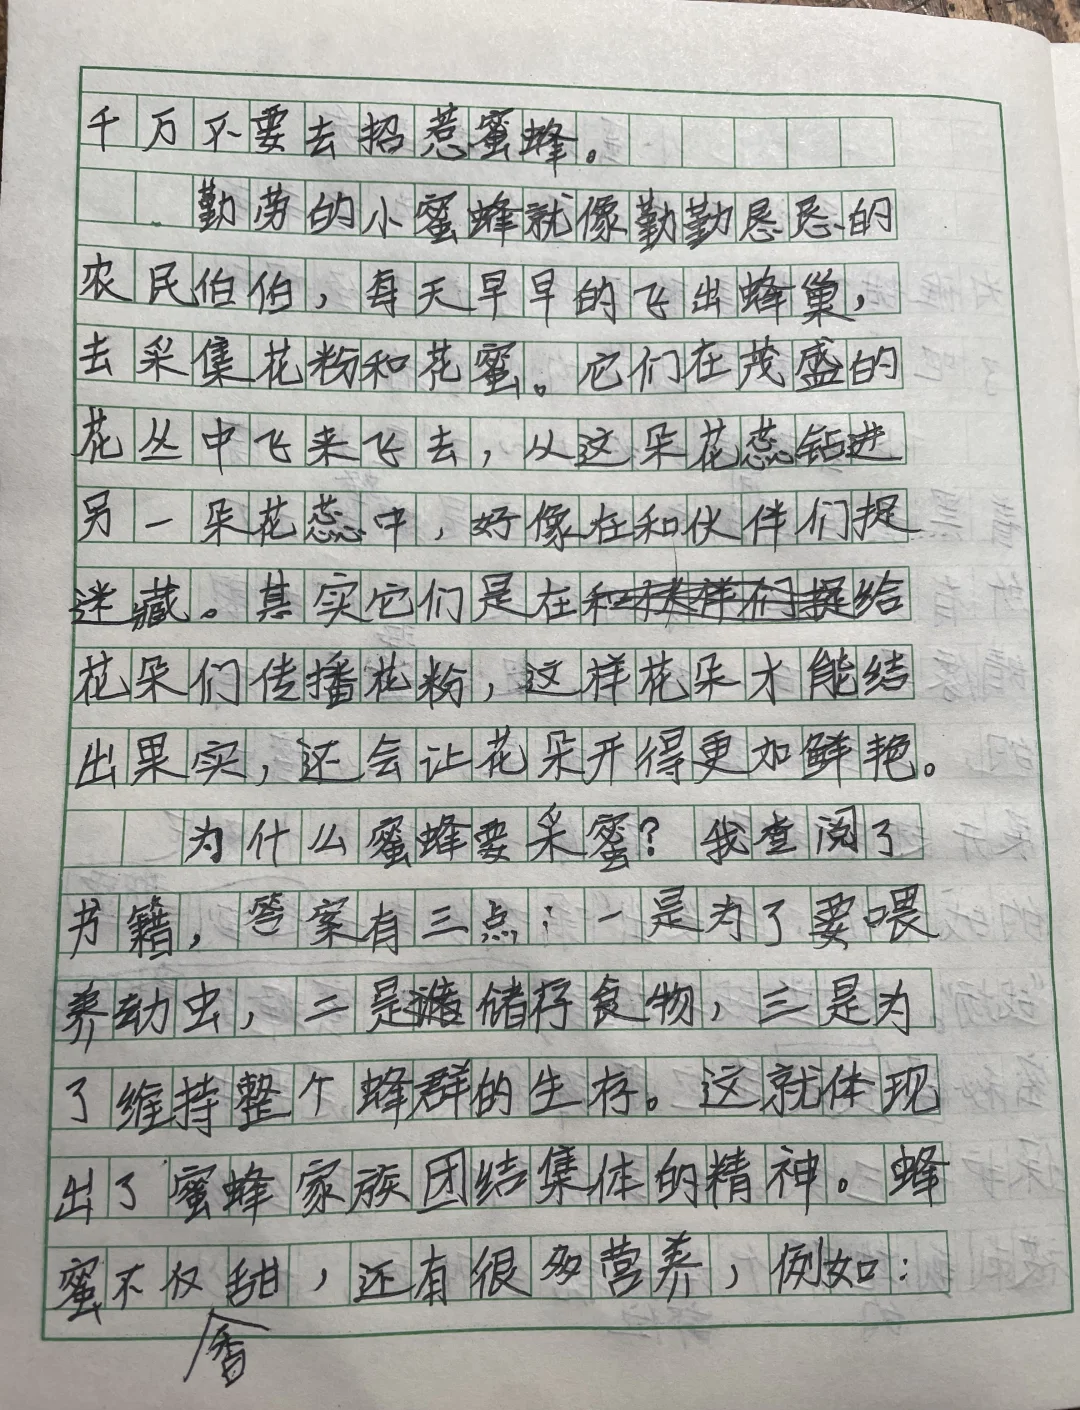 千万不要去招惹蜜蜂。
勤劳的小蜜蜂就像勤勤恳恳的
农民伯伯，每天早早的飞出蜂巢，
去采集花粉和花蜜。它们在茂盛的
花丛中飞来飞去，从这朵花蕊钻进
另一朵花蕊中，好像在和伙伴们捉
迷藏。其实它们是在给
花朵们传播花粉，这样花朵才能结
出果实，还会让花朵开得更加鲜艳。
为什么蜜蜂要采蜜？我查阅了
书籍，答案有三点：一是为了要喂
养幼虫，二是储存食物，三是为
了维持整个蜂群的生存。这就体现
出了蜜蜂家族团结集体的精神。蜂
蜜不仅香甜，还有很多营养，例如：